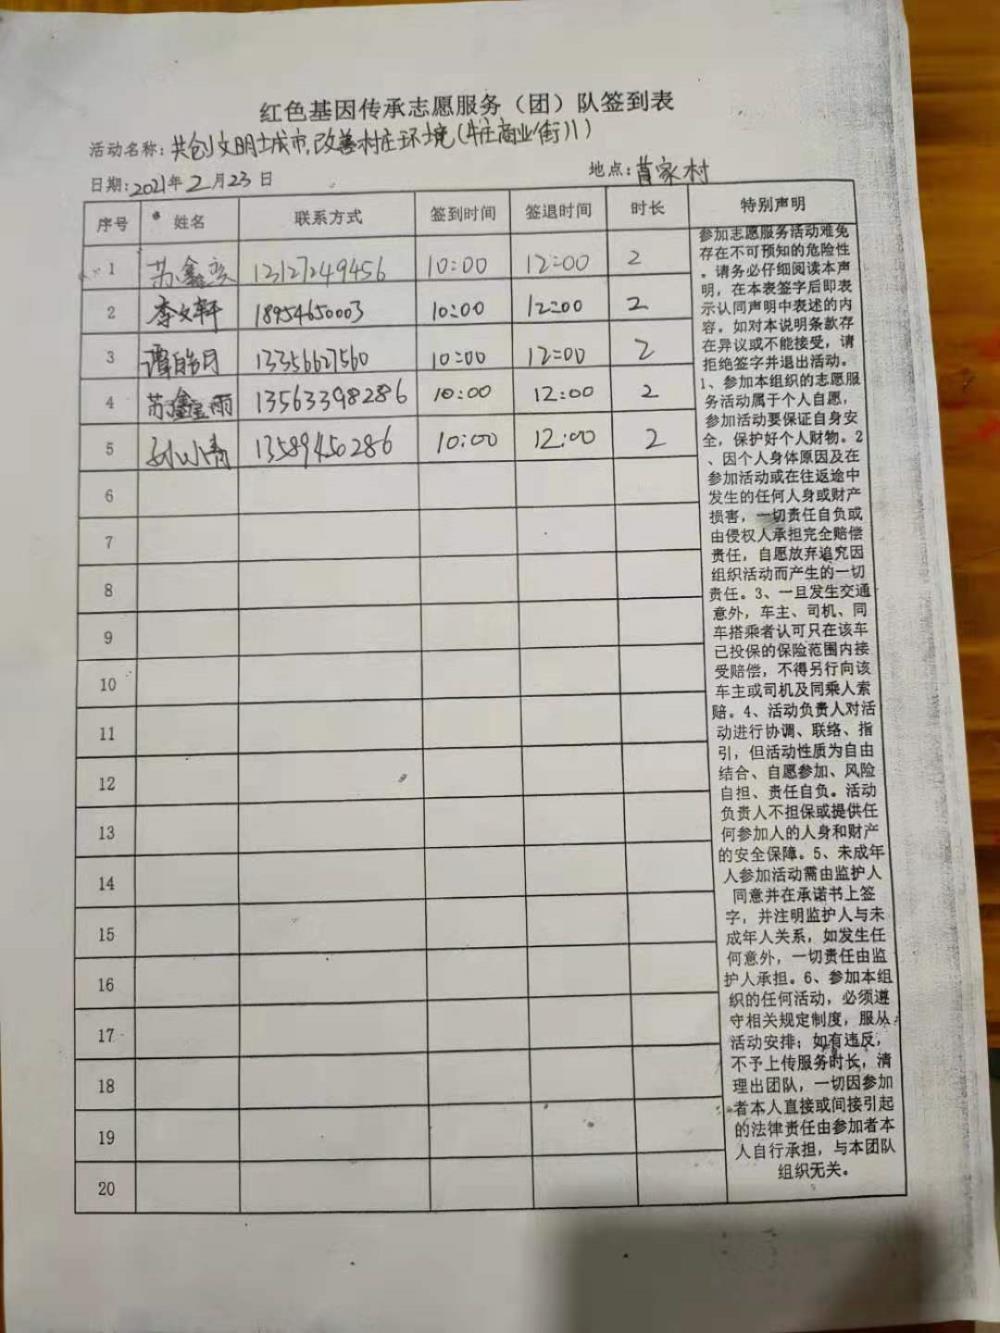 红色基因传承志愿服务（团）队签到表
活动名称：共创文明城市,改善村庄环境(牛庄商业街)
日期：2021年2月23日 地点：首家村
序号 姓名 联系方式 签到时间 签退时间 时长 特别声明
1 苏鑫奕 13127249456 10:00 12:00 2
2 李文轩 18954650003 10:00 12:00 2
3 谭皓月 13356627560 10:00 12:00 2
4 苏鑫雨 13563398286 10:00 12:00 2
5 孙小青 13589450286 10:00 12:00 2
6
7
8
9
10
11
12
13
14
15
16
17
18
19
20
参加志愿服务活动难免
存在不可预知的危险性
。请务必仔细阅读本声
明，在本表签字后即表
示认同声明中表述的内
容。如对本说明条款存
在异议或不能接受，请
拒绝签字并退出活动。
1、参加本组织的志愿服
务活动属于个人自愿，
参加活动要保证自身安
全，保护好个人财物。2
、因个人身体原因及在
参加活动或在往返途中
发生的任何人身或财产
损害，一切责任自负或
由侵权人承担完全赔偿
责任，自愿放弃追究因
组织活动而产生的一切
责任。3、一旦发生交通
意外，车主、司机、同
车搭乘者认可只在该车
已投保的保险范围内接
受赔偿，不得另行向该
车主或司机及同乘人索
赔。4、活动负责人对活
动进行协调、联络、指
引，但活动性质为自由
结合、自愿参加、风险
自担、责任自负。活动
负责人不担保或提供任
何参加人的人身和财产
的安全保障。5、未成年
人参加活动需由监护人
同意并在承诺书上签
字，并注明监护人与未
成年人关系，如发生任
何意外，一切责任由监
护人承担。6、参加本组
织的任何活动，必须遵
守相关规定制度，服从
活动安排；如有违反，
不予上传服务时长，清
理出团队，一切因参加
者本人直接或间接引起
的法律责任由参加者本
人自行承担，与本团队
组织无关。